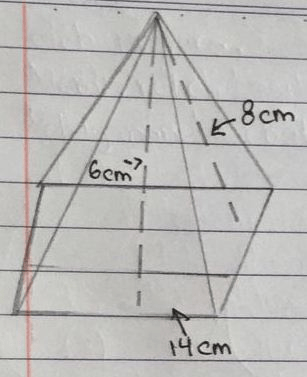 8cm
6cm
14cm